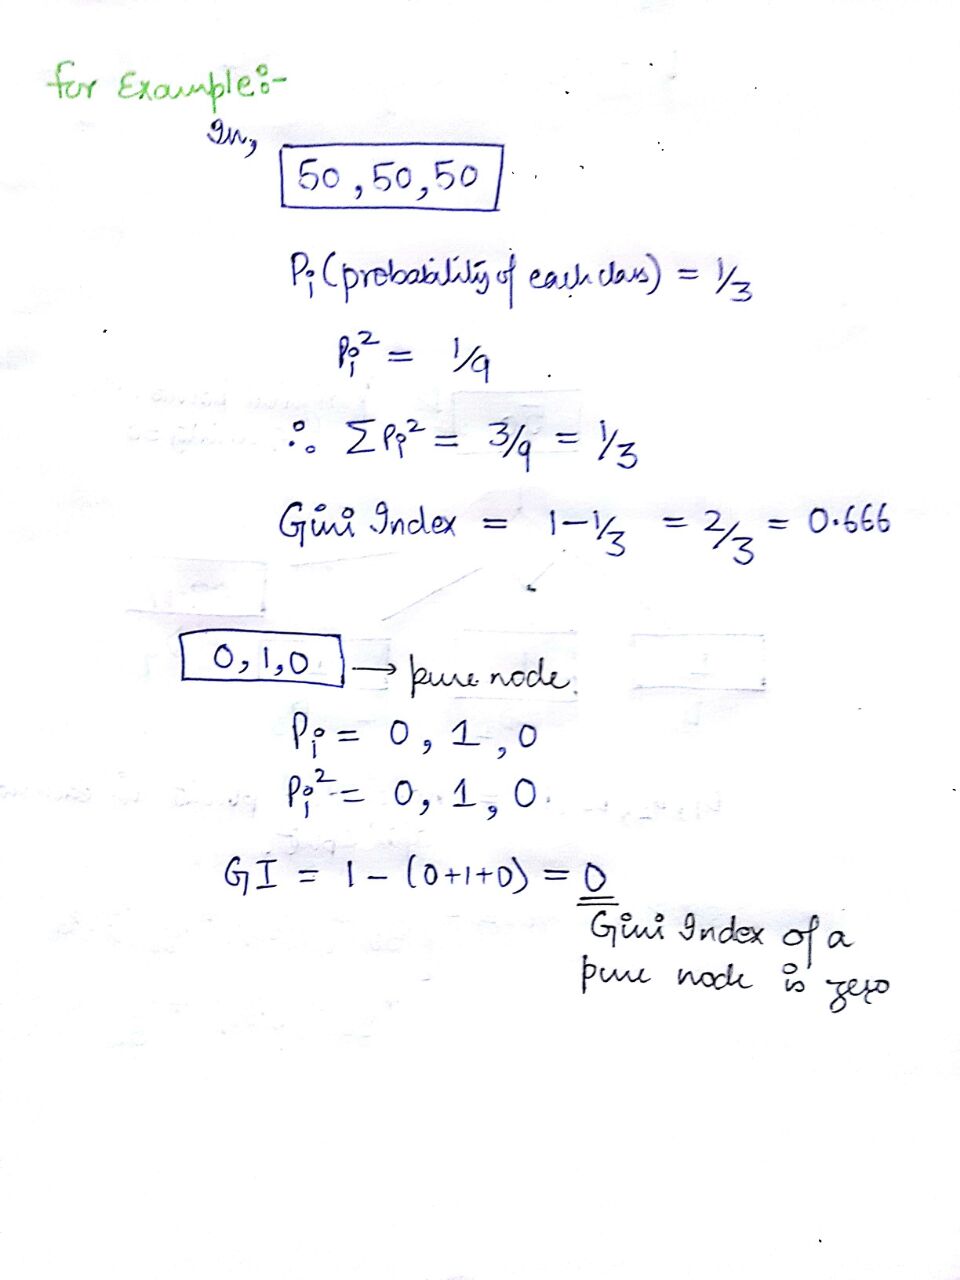 for Example:-
In,
50, 50, 50
Pi (probability of each class) = 1/3
Pi² = 1/9
∴ ΣPi² = 3/9 = 1/3
Gini Index = 1 - 1/3 = 2/3 = 0.666
0, 1, 0 → pure node.
Pi = 0, 1, 0
Pi² = 0, 1, 0.
GI = 1 - (0+1+0) = 0
Gini Index of a
pure node is zero